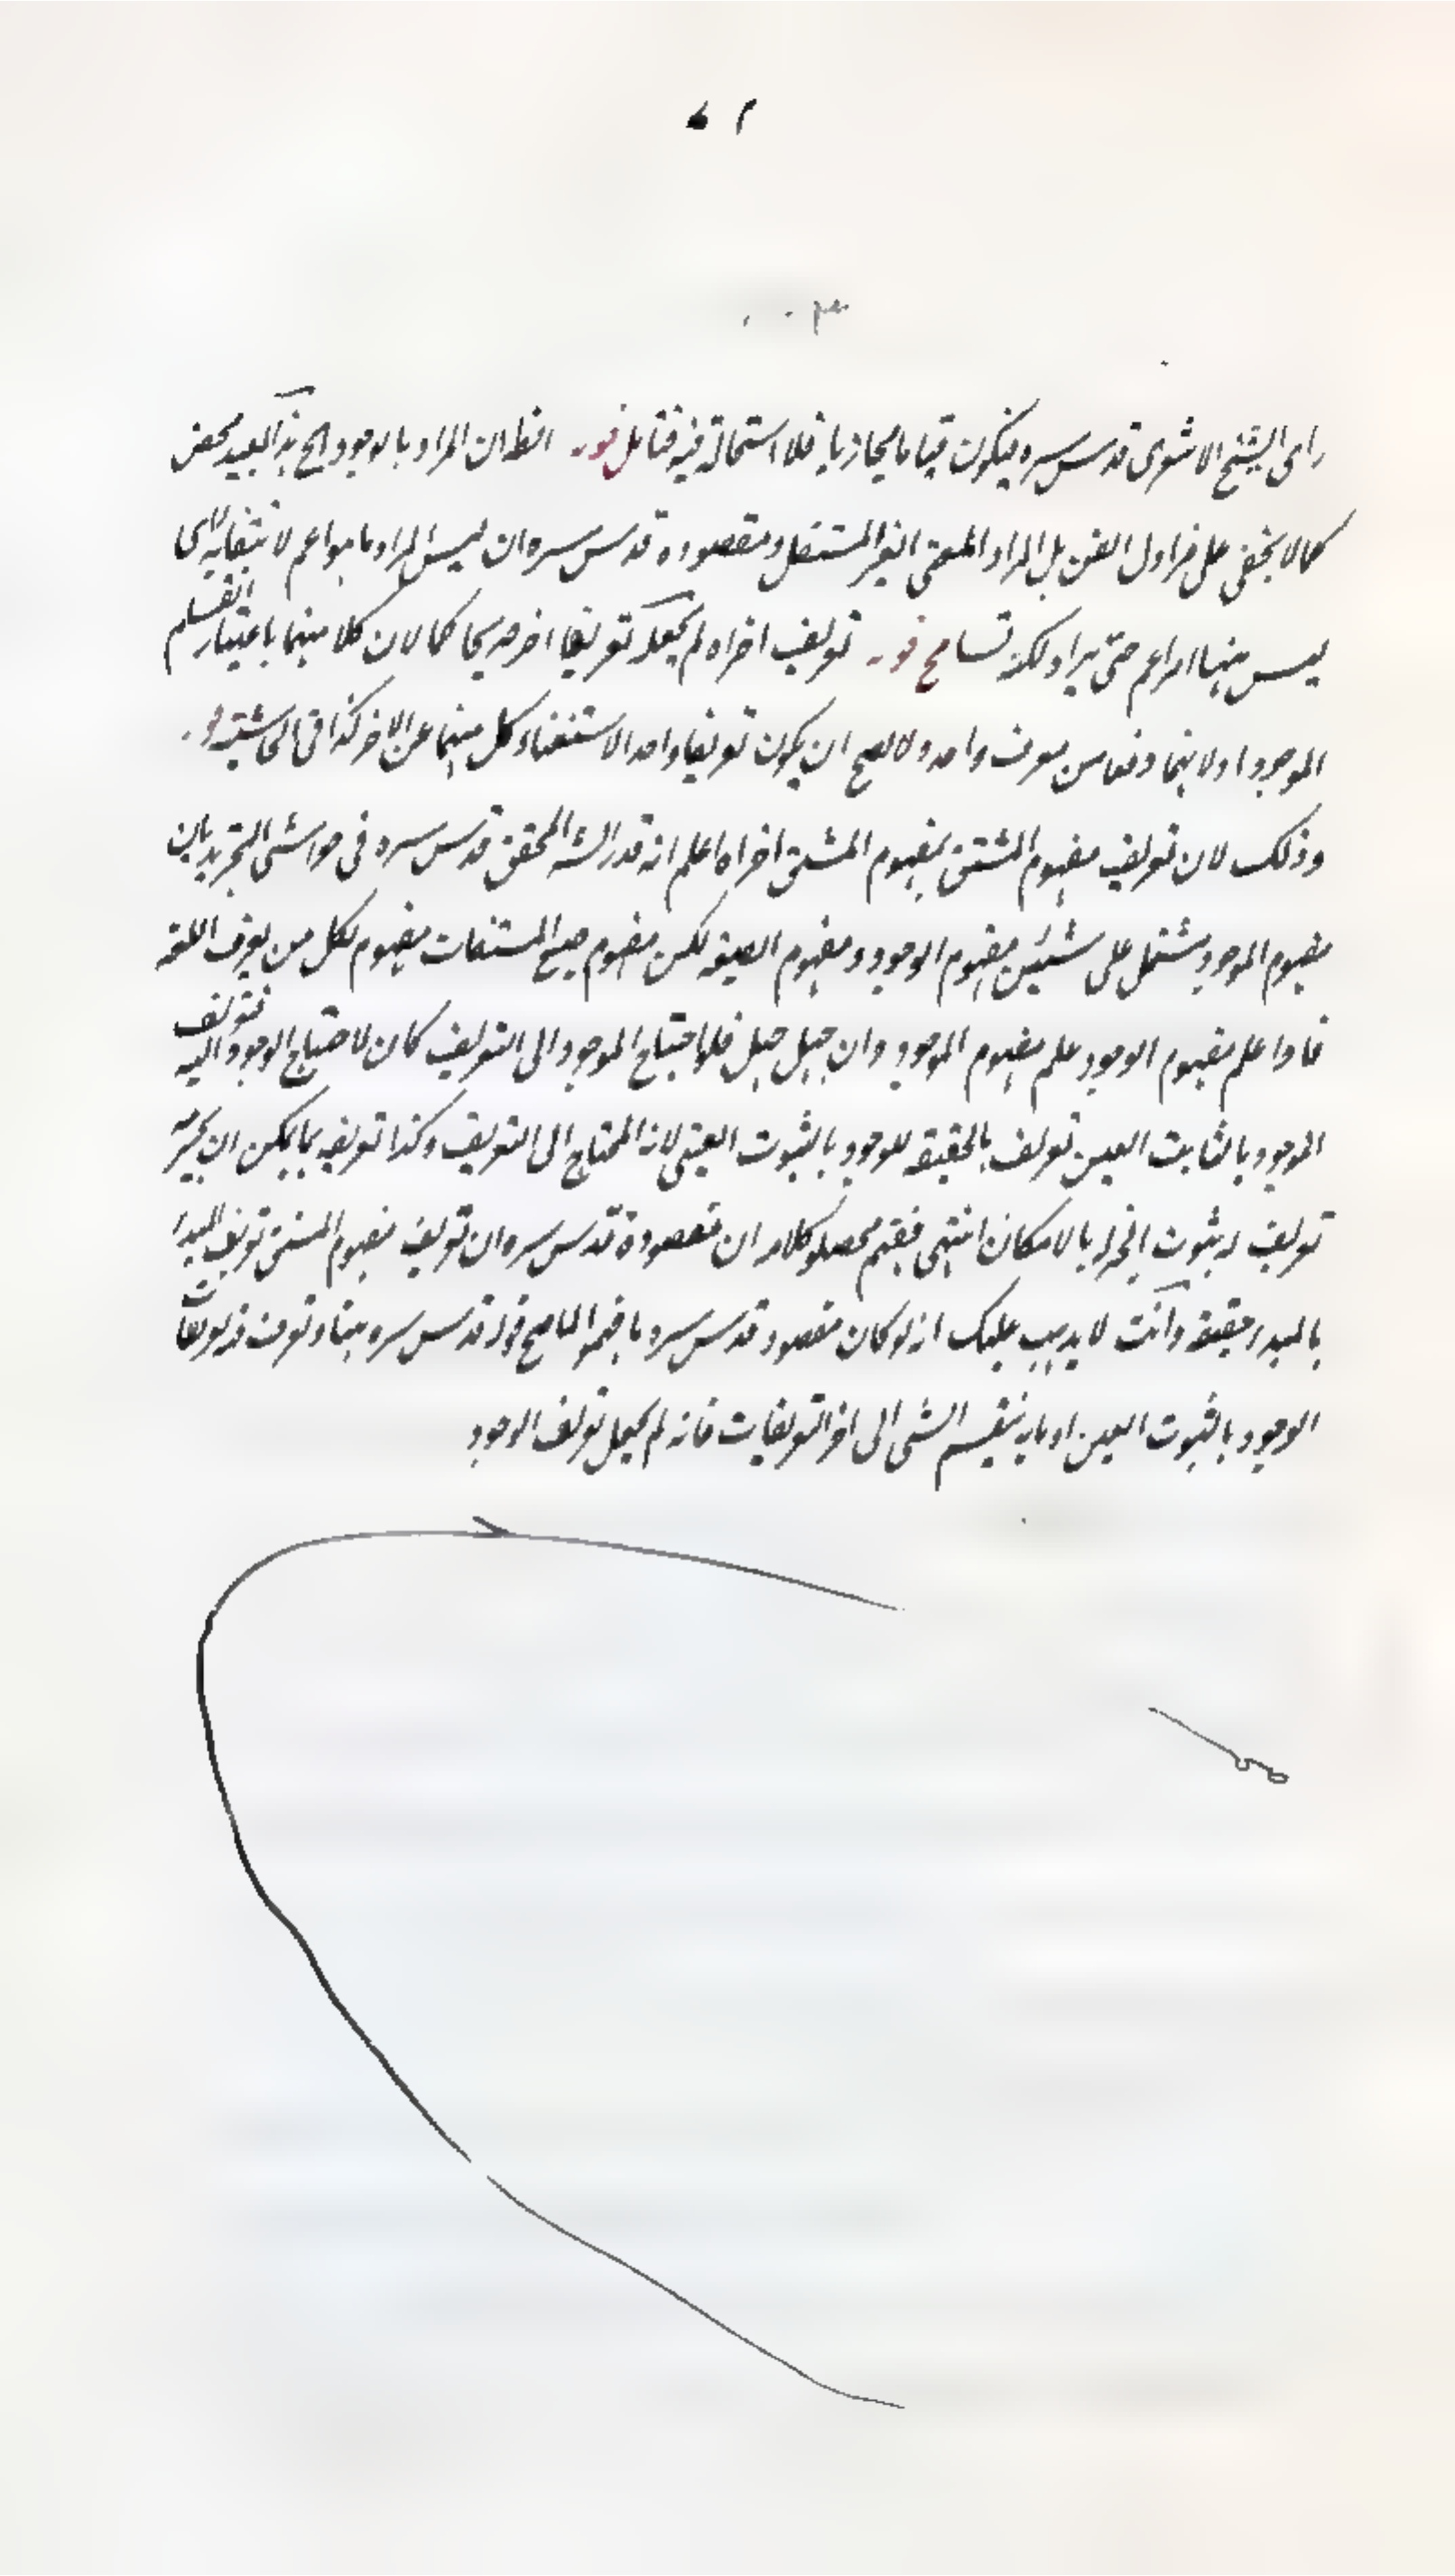 راى الشيخ الاشعرى قدس سره فيكون قياما مجازيا فلا استحالة فيه فتأمل قوله الظ ان المراد بالوجود الخ هذا بعيد محض
كما لا يخفى على مزاول الفن بل المراد المعنى الغير المستقل ومقصوده قدس سره ان ليس المراد ما هو اعم لانتفائه اى
ليس ههنا امر اعم حتى يراد لكنه تسامح قوله تعريف اخر اه لم يجعله تعريفا اخر صريحا كما لان كلا منهما باعتبار انقسام
الموجود اولا بهما وقعا من معرف واحد ولا يصح ان يكون تعريفا واحدا لاستغناء كل منهما عن الاخر كذا فى الحاشية قوله
وذلك لان تعريف مفهوم المشتق بمفهوم المشتق اخر اه اعلم انه قدر الشه المحقق قدس سره فى حواشى التجريد بان
مفهوم الموجود مشتمل على شيئين مفهوم الوجود ومفهوم الصيغة لكن مفهوم صيغ المشتقات مفهوم لكل من يعرف اللغة
فاذا علم مفهوم الوجود علم مفهوم الموجود وان جهل جهل فلو احتاج الموجود الى التعريف كان لاحتياج الوجود اليه فتعريف
الموجود بالثابت العين تعريف بالحقيقة للوجود بالثبوت العينى لانه المحتاج الى التعريف وكذا تعريفه بما يمكن ان يخبر عنه
تعريف له بثبوت الخبر بالامكان انتهى ففهم محصلو كلامه ان مقصوده قدس سره ان تعريف مفهوم المشتق تعريف المبدأ
بالمبدء حقيقة وانت لا يذهب عليك انه لو كان مقصود قدس سره ما فهموا لما صح قوله قدس سره هنا وتعرف قد تعريفات
الوجود بالثبوت العين او ما به ينقسم الشى الى اخر التعريفات فانه لم يجعل تعريف الوجود